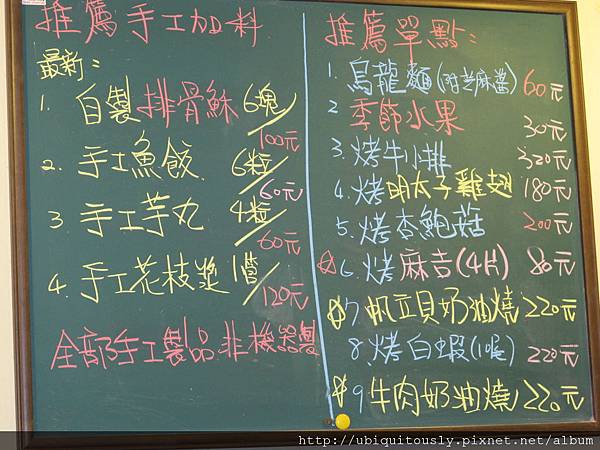 推薦手工加料
最新：
1. 自製排骨酥 6塊/100元
2. 手工魚餃 6粒/60元
3 手工芋丸 4粒/60元
4. 手工花枝漿 1管/120元
全部手工製品.非機器製
推薦單點：
1. 烏龍麵(附芝麻醬) 60元
2 季節水果 30元
3. 烤牛小排 320元
4. 烤明太子雞翅 180元
5. 烤杏鮑菇 200元
☆6. 烤麻吉(4片) 80元
☆7. 帆立貝奶油燒 220元
8. 烤白蝦(1喔) 220元
☆9 牛肉奶油燒 220元
http://ubiquitously.pixnet.net/album